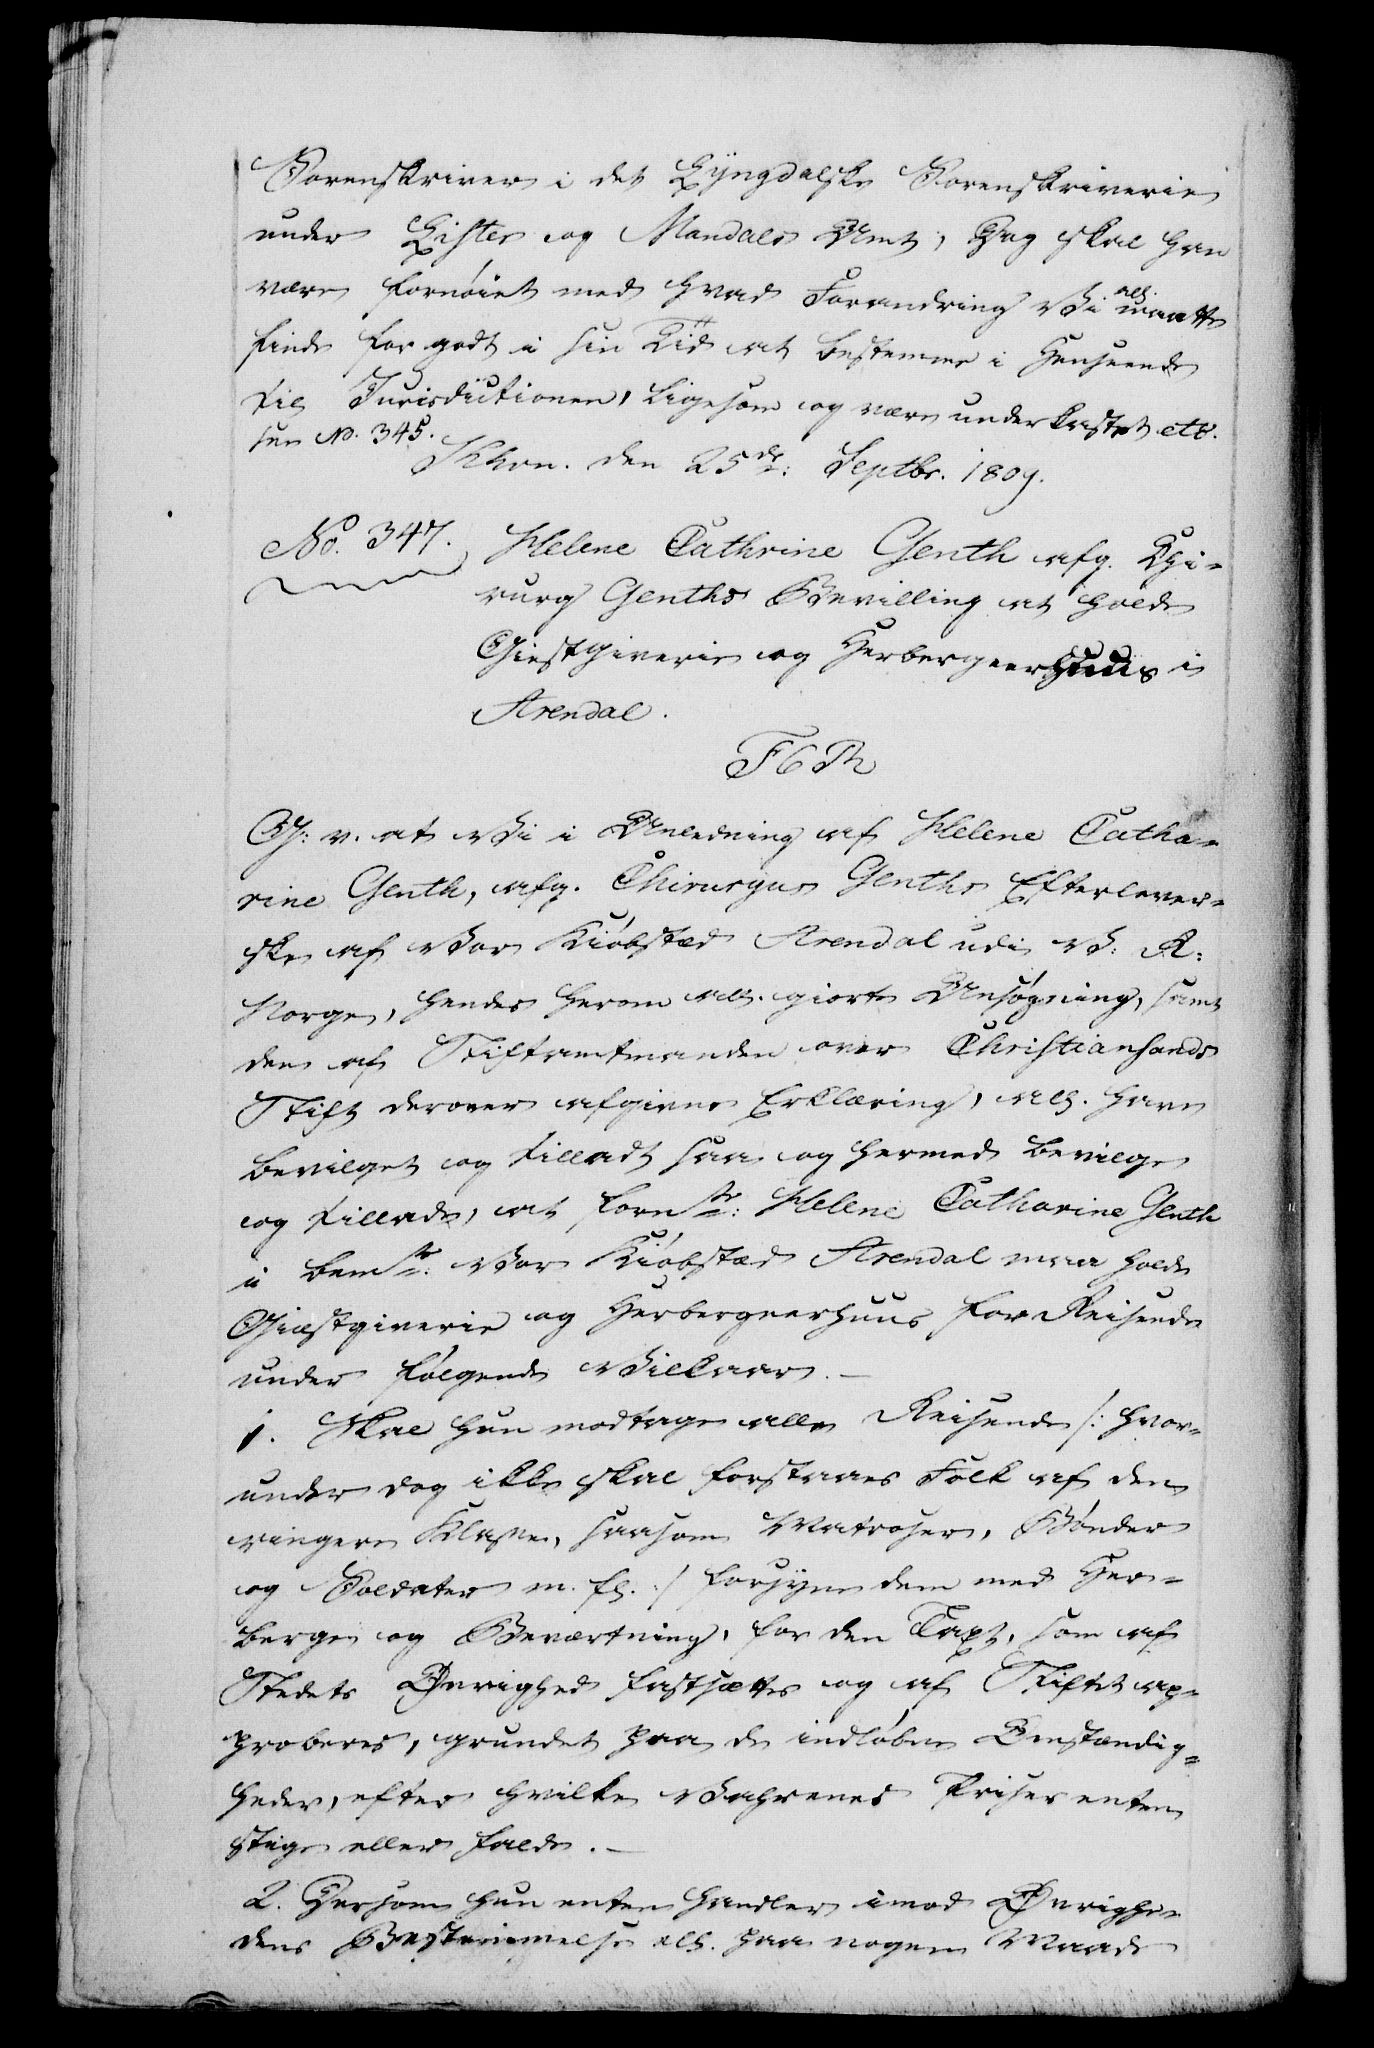 Sorenskriver i det Lÿngdalske Sorenskriverie
under Lister og Mandals Amt, Dog skal han
være fornøiet med hvad Forandring Vi all. maatte
finde for godt i sin Tid at bestemme i Henseende
til Jurisdictionen, ligesom og være underkastet etc.
see No. 345.
Khvn. den 25de: Septbr. 1809.
No. 347.
Helene Cathrine Genth afg. Chi-
rurg Genths Bevilling at holde
Giestgiverie og Herbergeerhuus i
Arendal.
F6R
G: v. at Vi i Anledning af Helene Catha-
rine Genth, afg. Chirurgus Genths Efterlever-
ske af Vor Kiøbstæd Arendal udi V: R:
Norge, hendes herom all. giorte Ansøgning, samt
den af Stiftamtmanden over Christiansands
Stift derover afgivne Erklæring, all. have
bevilget og tilladt saa og hermed bevilge
og tillade, at fornte: Helene Catharine Genth
i bemte: Vor Kiøbstæd Arendal maa holde
Giæstgiverie og Herbergeerhuus for Reisende
under følgende Vilkaar. —
1. Skal hun modtage alle Reisende /: hvor-
under dog ikke skal forstaaes Folk af den
ringere Klasse, saasom Matroser, Bønder
og Soldater m. fl. :/ forsÿne dem med Her-
berge og Beværtning, for den Taxt, som af
Stedets Øvrighed fastsættes og af Stiftet ap-
proberes, grundet paa de indløbne Omstændig-
heder, efter hvilke Vahrenes Priser enten
stige eller falde. —
2. Dersom hun enten handler imod Øvrighe-
dens Bestemmelse ell. paa nogen Maade